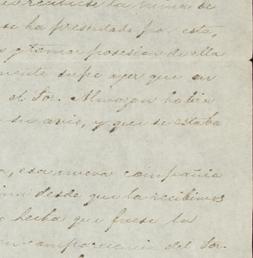 se ha prestado por esta,
y tomar posesion de ella
mente supe ayer que en
el Sor. Almazan habia
su aviso, y que se estaba
esa nueva compañia
desde que la recibimos
hecha que fuese la
comparecencia del Sor.